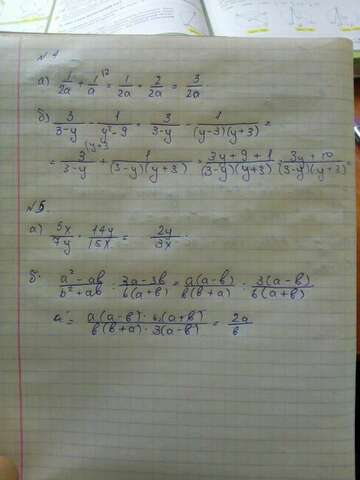 №1
а) 1/2a + 1/a ^12 = 1/2a + 2/2a = 3/2a
б) 3/3-y - 1/y²-9 = 3/3-y - 1/(y-3)(y+3) =
= 3/3-y ^(y+3 + 1/(3-y)(y+3) = 3y+9+1/(3-y)(y+3) = 3y+10/(3-y)(y+3)
№5.
а) 5x/7y · 14y/15x = 2y/3x
б. a²-aв/в²+aв · 3a-3в/6(a+в) = a(a-в)/в(в+a) · 3(a-в)/6(a+в)
= a(a-в)·6(a+в)/в(в+a)·3(a-в) = 2a/в